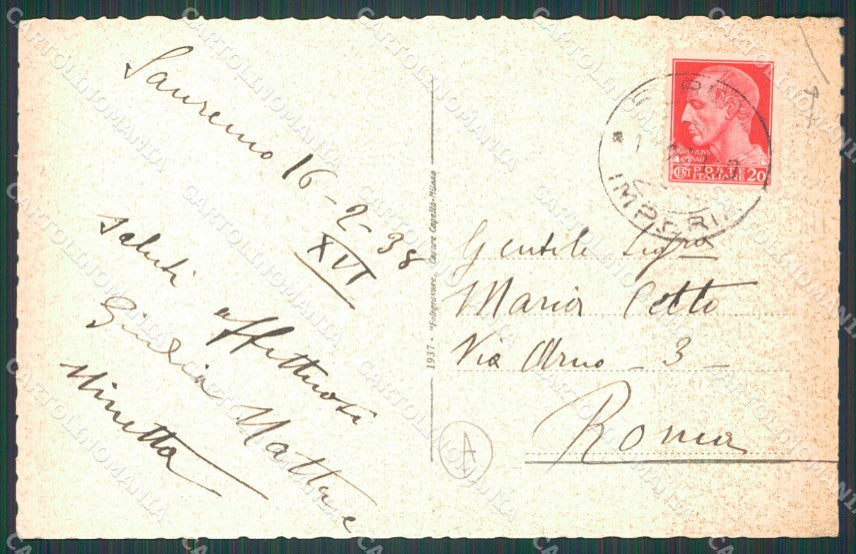 Sanremo 16-2-38
XVI
saluti affettuosi
Giulia
Minetta
1937 - "Fotogravure" Cesare Capello-Milano
Gentile Sigra
Maria
Via Arno - 3 -
Roma
A
POSTE
ITALIANE
CENT 20
IMPERIA
CARTOLINOMANIA